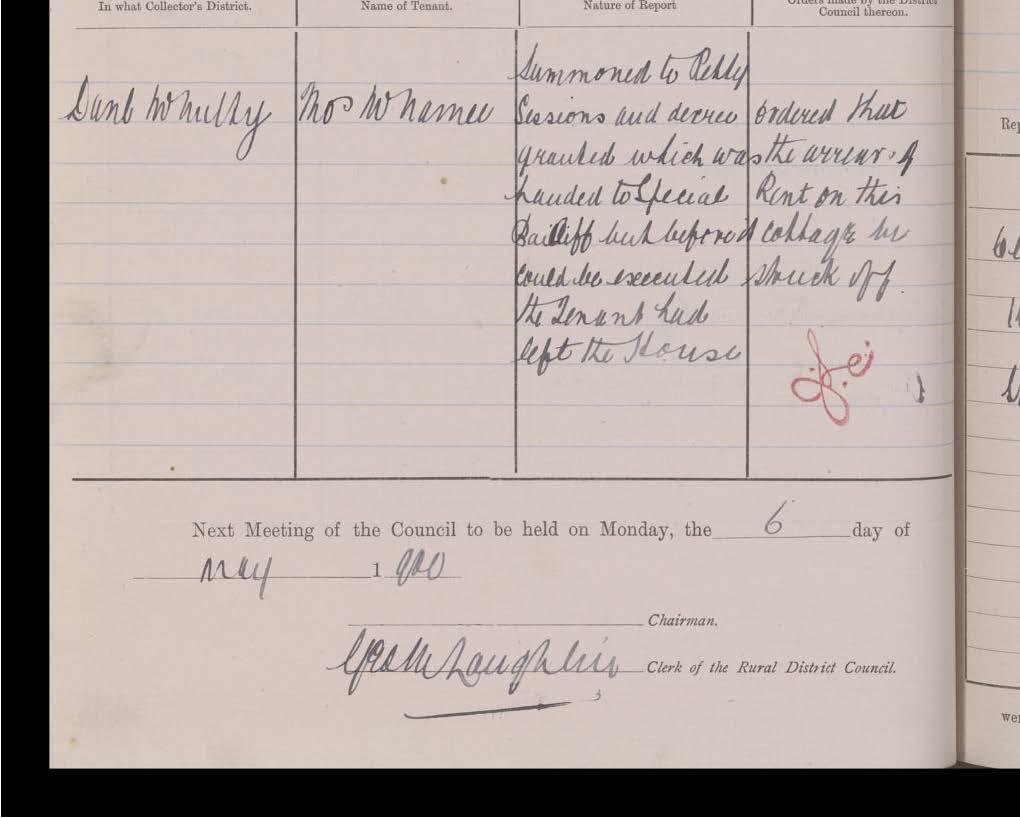 In what Collector's District.
Name of Tenant.
Nature of Report
Orders made by the District
Council thereon.
Danl McNulty
Thos McNamee
Summoned to Petty
Sessions and decree
granted which was
handed to Special
Bailiff but before it
could be executed
the Tenant had
left the House
ordered that
the arrear of
Rent on this
Cottage be
struck off.
Next Meeting of the Council to be held on Monday, the 6 day of
May 1 900
Chairman.
Geo McLaughlin Clerk of the Rural District Council.
Rep
wer